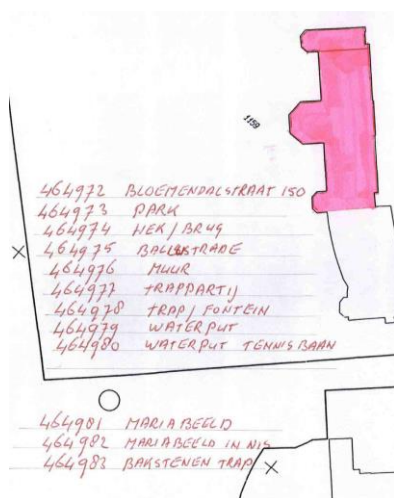 1159
464972 BLOEMENDALSTRAAT 150
464973 PARK
464974 HEK / BRUG
464975 BALUSTRADE
464976 MUUR
464977 TRAPPARTIJ
464978 TRAP / FONTEIN
464979 WATERPUT
464980 WATERPUT TENNISBAAN
464981 MARIABEELD
464982 MARIABEELD IN NIS
464983 BAKSTENEN TRAP